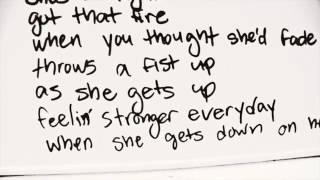 got that fire
when you thought she'd fade
throws a fist up
as she gets up
feelin' stronger everyday
when she gets down on